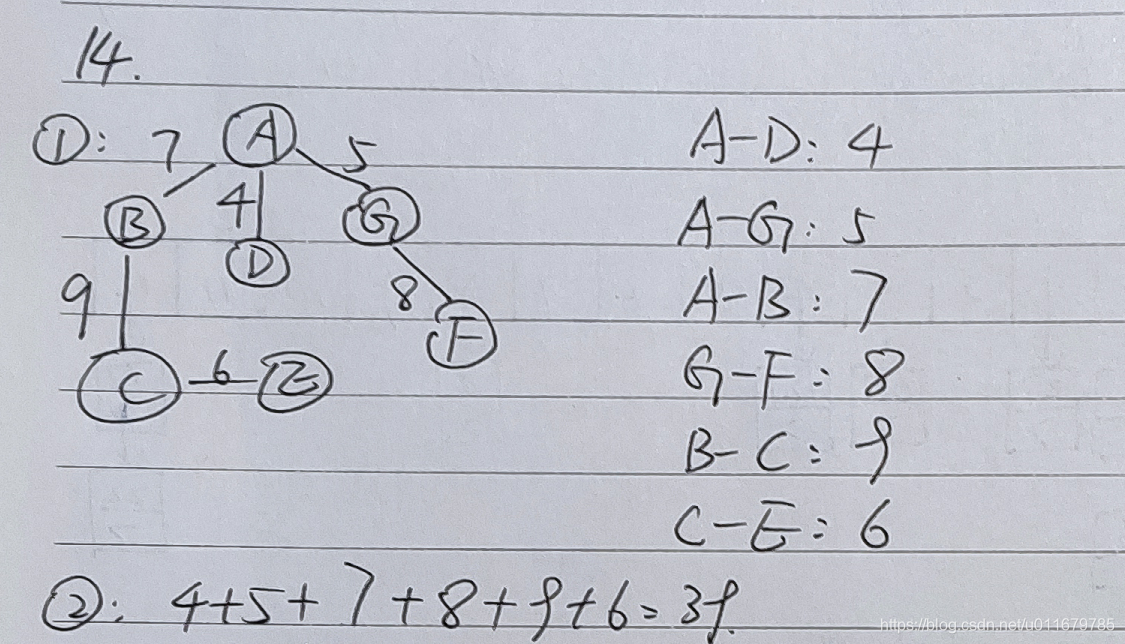 14.
①: 7 A 5
B 4 G
D
9 8 F
C 6 E
A-D: 4
A-G: 5
A-B: 7
G-F: 8
B-C: 9
C-E: 6
②: 4+5+7+8+9+6=39.
https://blog.csdn.net/u011679785